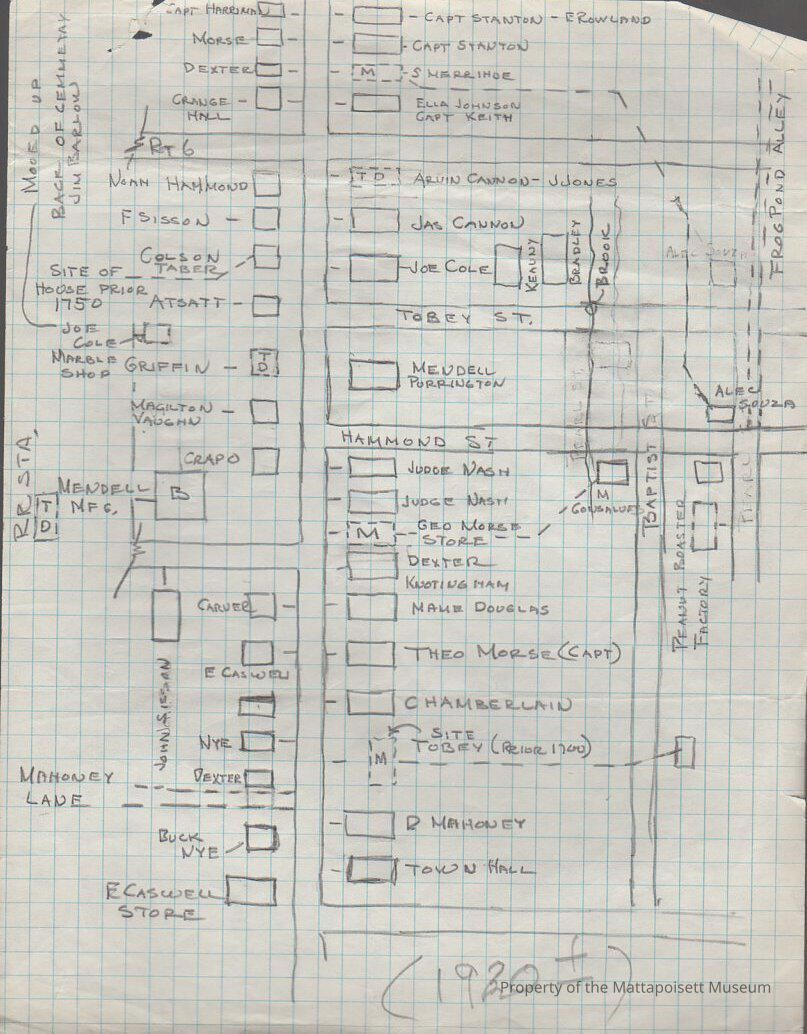 CAPT HARRIMAN
MORSE
DEXTER
GRANGE
HALL
CAPT STANTON - E ROWLAND
CAPT STANTON
M
S MERRIHOE
ELLA JOHNSON
CAPT KEITH
MOOED UP
BACK OF CEMMETARY
JIM BARLOW
FROG POND ALLEY
RT 6
NOAH HAMMOND
F SISSON
COLSON
TABER
SITE OF
HOUSE PRIOR
1750
ATSATT
JOE
COLE
MARBLE
SHOP
GRIFFIN
TD
MAGILTON
VAUGHN
CRAPO
MENDELL
MFG.
B
RR STA.
TD
TD
ARVIN CANNON - J JONES
JAS CANNON
JOE COLE
KEANY
BRADLEY
BROOK
ALEC SOUZA
TOBEY ST.
MENDELL
PURRINGTON
ALEC
SOUZA
HAMMOND ST
JUDGE NASH
JUDGE NASH
M
GEO MORSE
STORE
M
GONSALUES
BAPTIST ST
PEARL
PEANUT ROASTER
FACTORY
DEXTER
KNOTINGHAM
MAME DOUGLAS
THEO MORSE (CAPT)
CHAMBERLAIN
SITE
TOBEY (PRIOR 1700)
M
D MAHONEY
TOWN HALL
CARVER
E CASWELL
JOHN SISSON
NYE
DEXTER
MAHONEY
LANE
BUCK
NYE
E CASWELL
STORE
(1930 ±)
Property of the Mattapoisett Museum